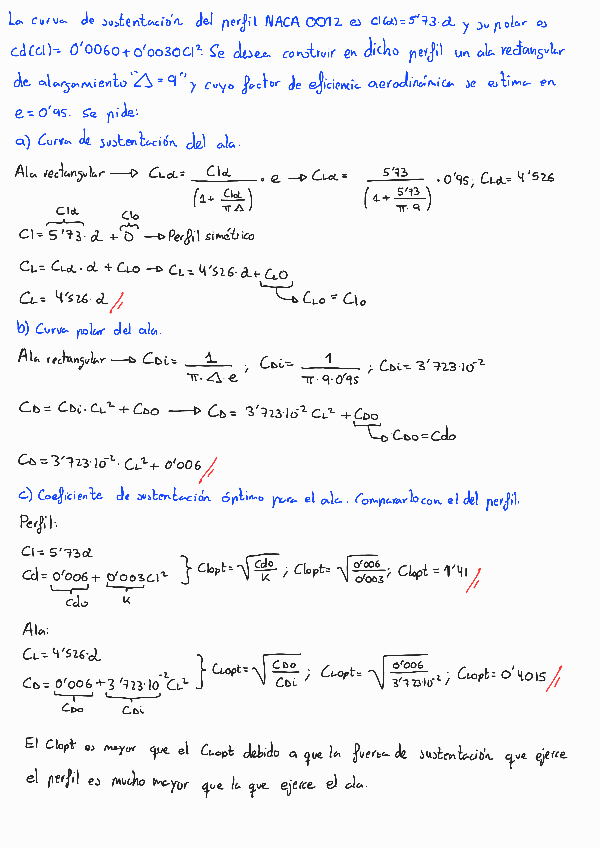 La curva de sustentación del perfil NACA 0012 es Cl(α)=5'73·α y su polar es
cd(Cl)= 0'0060+0'0030Cl². Se desea construir en dicho perfil un ala rectangular
de alargamiento "Λ=9" y cuyo factor de eficiencia aerodinámica se estima en
e=0'95. Se pide:
a) Curva de sustentación del ala.
Ala rectangular → CLα= Clα / (1+ Clα/πΛ) · e → CLα= 5'73 / (1+ 5'73/π·9) · 0'95, CLα= 4'526
Clα Clo
Cl= 5'73·α + 0 → Perfil simétrico
CL= CLα·α + CLO → CL= 4'526·α+CLO
CL= 4'526·α
CLO = Clo
b) Curva polar del ala.
Ala rectangular → CDi= 1 / π·Λ e ; CDi= 1 / π·9·0'95 ; CDi= 3'723·10⁻²
CD= CDi·CL²+CDO → CD= 3'723·10⁻² CL²+CDO
CDO=Cdo
CD= 3'723·10⁻²·CL²+0'006
c) Coeficiente de sustentación óptimo para el ala. Compararlo con el del perfil.
Perfil:
Cl= 5'73α
Cd= 0'006+ 0'003Cl² } Clopt= √Cdo/K ; Clopt= √0'006/0'003 ; Clopt = 1'41
Cdo K
Ala:
CL= 4'526·α
CD= 0'006+3'723·10⁻²CL² } CLopt= √CDO/CDi ; CLopt= √0'006/3'723·10⁻² ; CLopt= 0'4015
CDO CDi
El Clopt es mayor que el CLopt debido a que la fuerza de sustentación que ejerce
el perfil es mucho mayor que la que ejerce el ala.